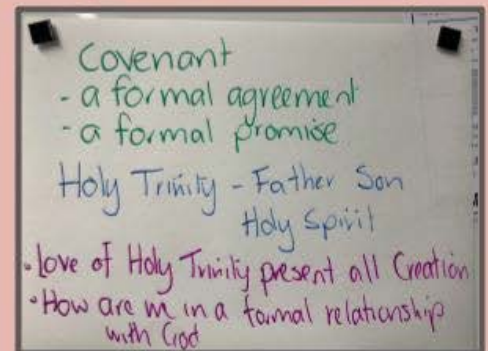 Covenant
- a formal agreement
- a formal promise
Holy Trinity - Father Son
Holy Spirit
• Love of Holy Trinity present all Creation
• How are in a formal relationship
with God